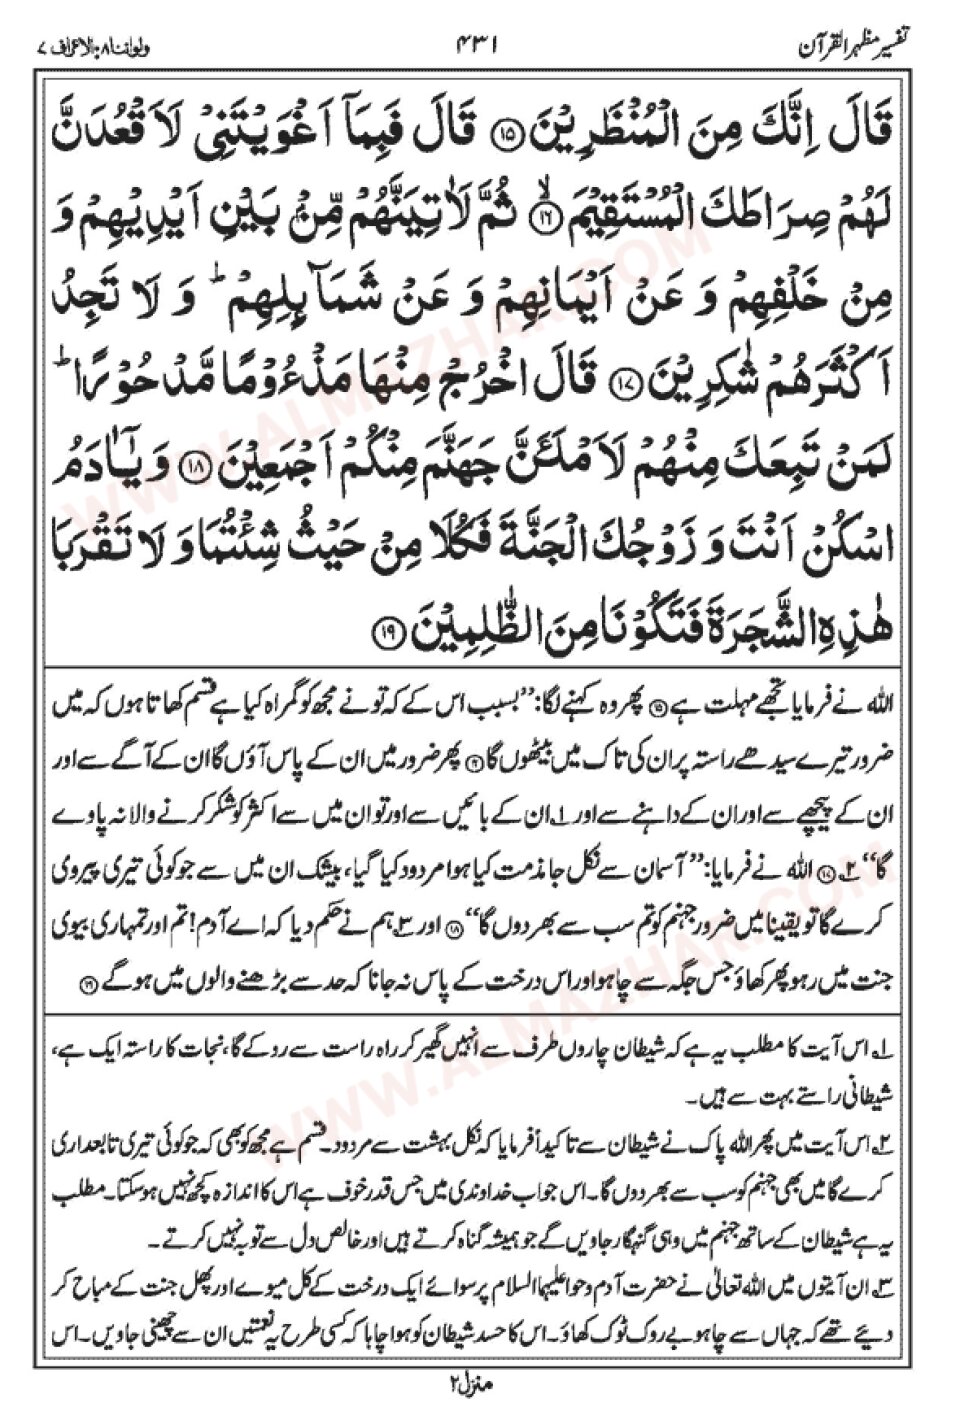 تفسیر مظہر القرآن
۴۳۱
ولواننا ۸: الاعراف ۷
قَالَ اِنَّكَ مِنَ الْمُنْظَرِيْنَ ﴿۱۵﴾ قَالَ فَبِمَآ اَغْوَيْتَنِيْ لَاَقْعُدَنَّ
لَهُمْ صِرَاطَكَ الْمُسْتَقِيْمَ ﴿۱۶﴾ۙ ثُمَّ لَاٰتِيَنَّهُمْ مِّنْۢ بَيْنِ اَيْدِيْهِمْ وَ
مِنْ خَلْفِهِمْ وَ عَنْ اَيْمَانِهِمْ وَ عَنْ شَمَآئِلِهِمْ ؕ وَ لَا تَجِدُ
اَكْثَرَهُمْ شٰكِرِيْنَ ﴿۱۷﴾ قَالَ اخْرُجْ مِنْهَا مَذْءُوْمًا مَّدْحُوْرًا ؕ
لَمَنْ تَبِعَكَ مِنْهُمْ لَاَمْلَئَنَّ جَهَنَّمَ مِنْكُمْ اَجْمَعِيْنَ ﴿۱۸﴾ وَ يٰۤاٰدَمُ
اسْكُنْ اَنْتَ وَ زَوْجُكَ الْجَنَّةَ فَكُلَا مِنْ حَيْثُ شِئْتُمَا وَ لَا تَقْرَبَا
هٰذِهِ الشَّجَرَةَ فَتَكُوْنَا مِنَ الظّٰلِمِيْنَ ﴿۱۹﴾
اللہ نے فرمایا تجھے مہلت ہے ﴿۱۵﴾ پھر وہ کہنے لگا: ’’بسبب اس کے کہ تو نے مجھ کو گمراہ کیا ہے قسم کھاتا ہوں کہ میں
ضرور تیرے سیدھے راستہ پر ان کی تاک میں بیٹھوں گا ﴿۱۶﴾ پھر ضرور میں ان کے پاس آؤں گا ان کے آگے سے اور
ان کے پیچھے سے اور ان کے داہنے سے اور ۱؎ ان کے بائیں سے اور تو ان میں سے اکثر کو شکر کرنے والا نہ پاوے
گا‘‘ ۲؎ ﴿۱۷﴾ اللہ نے فرمایا: ’’آسمان سے نکل جا مذمت کیا ہوا مردود کیا گیا، بیشک ان میں سے جو کوئی تیری پیروی
کرے گا تو یقیناً میں ضرور جہنم کو تم سب سے بھر دوں گا‘‘ ﴿۱۸﴾ اور ۳؎ ہم نے حکم دیا کہ اے آدم! تم اور تمہاری بیوی
جنت میں رہو پھر کھاؤ جس جگہ سے چاہو اور اس درخت کے پاس نہ جانا کہ حد سے بڑھنے والوں میں ہو گے ﴿۱۹﴾
۱؎ اس آیت کا مطلب یہ ہے کہ شیطان چاروں طرف سے انہیں گھیر کر راہ راست سے روکے گا، نجات کا راستہ ایک ہے،
شیطانی راستے بہت سے ہیں۔
۲؎ اس آیت میں پھر اللہ پاک نے شیطان سے تاکیداً فرمایا کہ نکل بہشت سے مردود۔ قسم ہے مجھ کو بھی کہ جو کوئی تیری تابعداری
کرے گا میں بھی جہنم کو سب سے بھر دوں گا۔ اس جواب خداوندی میں جس قدر خوف ہے اس کا اندازہ کچھ نہیں ہو سکتا۔ مطلب
یہ ہے شیطان کے ساتھ جہنم میں وہی گنہگار جاویں گے جو ہمیشہ گناہ کرتے ہیں اور خالص دل سے توبہ نہیں کرتے۔
۳؎ ان آیتوں میں اللہ تعالیٰ نے حضرت آدم و حوا علیہما السلام پر سوائے ایک درخت کے کل میوے اور پھل جنت کے مباح کر
دئے تھے کہ جہاں سے چاہو بے روک ٹوک کھاؤ۔ اس کا حسد شیطان کو ہوا چاہا کہ کسی طرح یہ نعمتیں ان سے چھینی جاویں۔ اس
منزل ۲
WWW.ALMAZHAR.COM
WWW.ALMAZHAR.COM